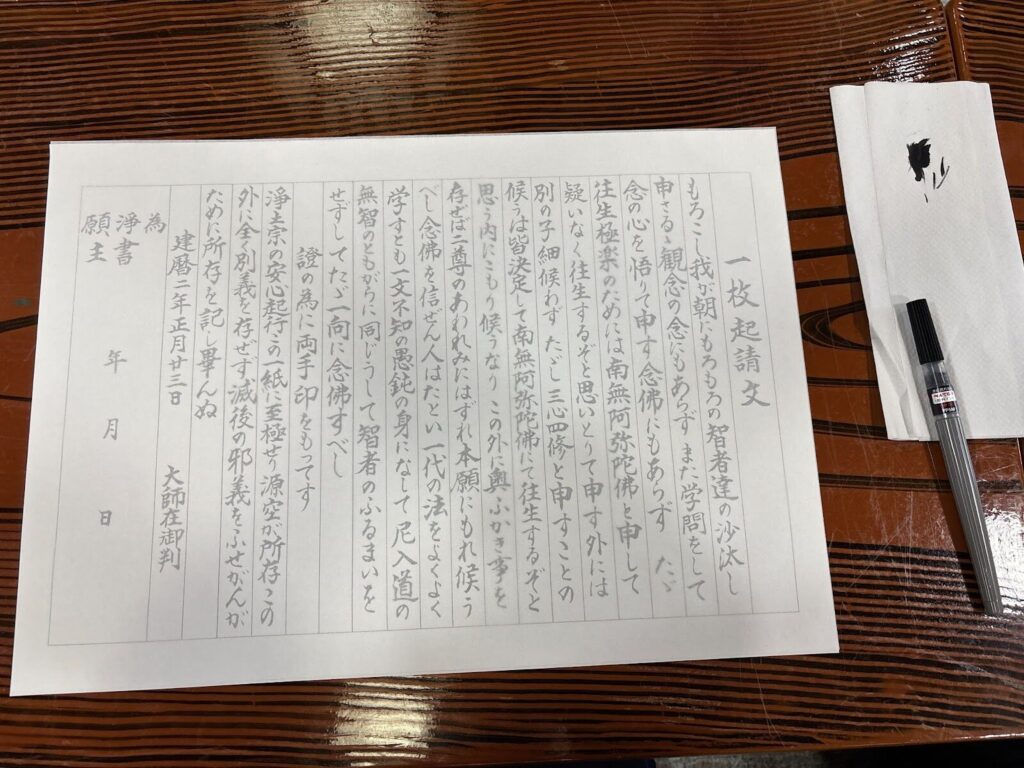 一枚起請文
もろこし我が朝にもろもろの智者達の沙汰し
申さるゝ観念の念にもあらず また学問をして
念の心を悟りて申す念佛にもあらず たゞ
往生極楽のためには南無阿弥陀佛と申して
疑いなく往生するぞと思いとりて申す外には
別の子細候わず たゞし三心四修と申すことの
候うは皆決定して南無阿弥陀佛にて往生するぞと
思う内にこもり候うなり この外に奥ふかき事を
存ぜば二尊のあわれみにはずれ本願にもれ候う
べし 念佛を信ぜん人はたとい一代の法をよくよく
学すとも一文不知の愚鈍の身になして 尼入道の
無智のともがらに同じうして 智者のふるまいを
せずして たゞ一向に念佛すべし
證の為に両手印をもってす
浄土宗の安心起行この一紙に至極せり 源空が所存この
外に全く別義を存ぜず 滅後の邪義をふせがんが
ために所存を記し畢んぬ
建暦二年正月廿三日 大師在御判
為
浄書
願主 年 月 日